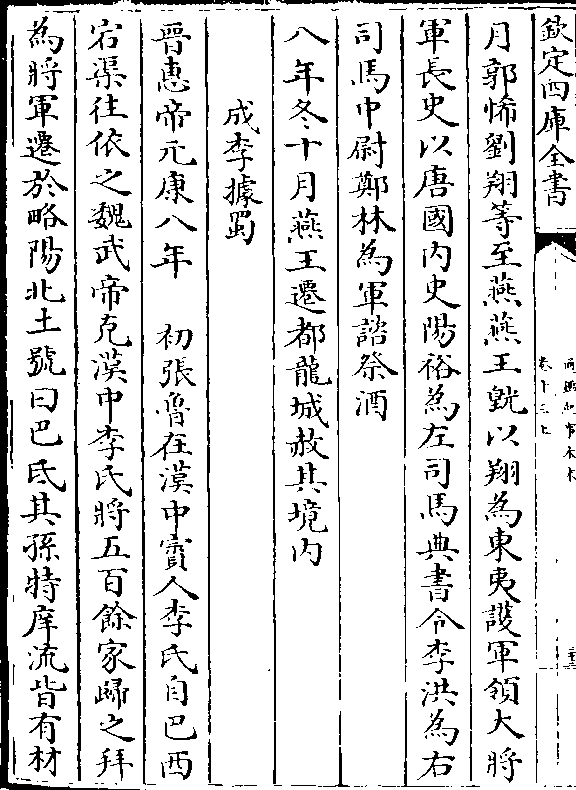 欽定四庫全書
卷十三上
月郭悕劉翔等至燕燕王皝以翔為東夷護軍領大將
軍長史以唐國内史陽裕為左司馬典書令李洪為右
司馬中尉鄭林為軍諮祭酒
八年冬十月燕王遷都龍城赦其境内
成李據蜀
晉惠帝元康八年 初張魯在漢中賨人李氏自巴西
宕渠往依之魏武帝克漢中李氏將五百餘家歸之拜
為將軍遷於略陽北土號曰巴氐其孫特庠流皆有材